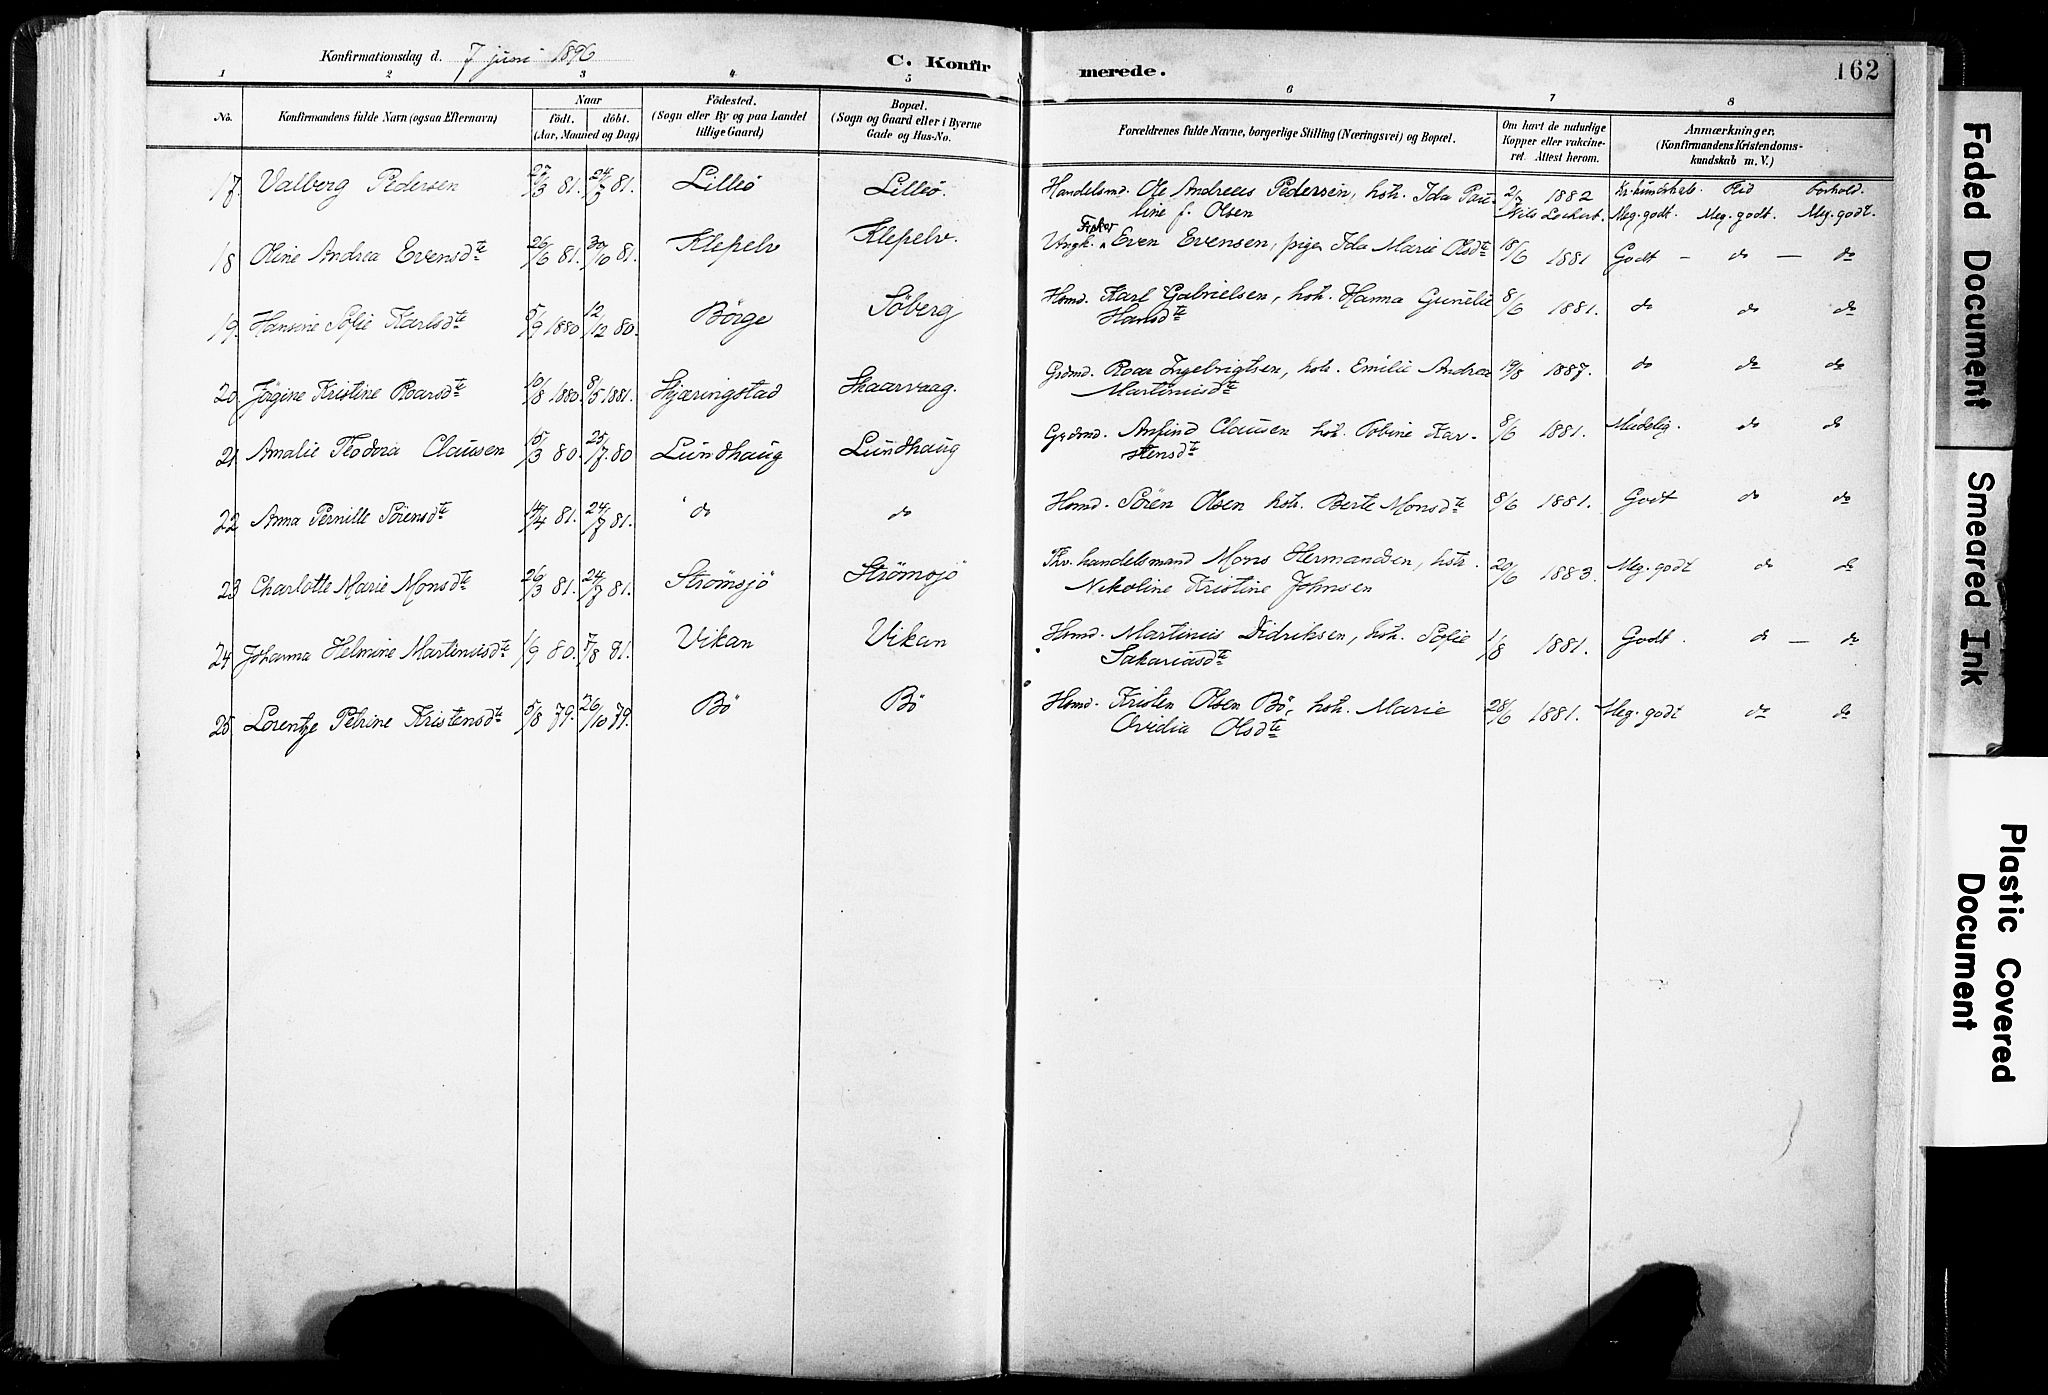 Konfirmationsdag d. 7 juni 1896
C. Konfirmerede.
162
1 2 3 4 5 6 7 8
No.
Konfirmandens fulde Navn (ogsaa Efternavn)
Naar
født. döbt.
(Aar, Maaned og Dag)
Födested.
(Sogn eller By og paa Landet
tillige Gaard)
Bopæl.
(Sogn og Gaard eller i Byerne
Gade og Hus-No.
Forældrenes fulde Navne, borgerlige Stilling (Næringsvei) og Bopæl.
Om havt de naturlige
Kopper eller vakcine-
ret. Attest herom.
Anmærkninger.
(Konfirmandens Kristendoms-
kundskab m. V.)
17. Valberg Pedersen 27/3 81. 24/7 81. Lilleö Lilleö. Handelsmd. Ole Andreas Pedersen, hstr. Ida Pau- 1882 Kr. kundskab. Flid Forhold.
line f. Olsen Nils Lockert. Meg. godt. Meg. godt. Meg. godt.
Fisker
18 Oline Andrea Evensdtr 26/6 81. 30/10 81. Klepelv Klepelv. Ungk. Even Evensen, pige Ida Marie Olsdtr 18/6 1881 Godt – do — do
19. Hansine Sofie Karlsdtr 5/9 1880 12/12 80. Börge Söberg Hsmd. Karl Gabrielsen, hstr. Hanna Gurelie 8/6 1881. do do do
Hansdtr
20 Jörgine Kristine Roarsdtr 10/8 1880. 8/5 1881. Skjæringstad Skaarvaag. Grdmd. Roar Ingebrigtsen, hstr. Emilie Andrea 19/8 1887. do do do
Martinusdtr
21 Amalie Teodora Clausen 15/3 80. 25/7 80 Lundhaug Lundhaug Grdmd. Arfind Clausen hstr. Tobine Kar- 8/6 1881. Mådelig. do do
stensdtr
22 Anna Pernille Sörensdtr 14/4 81. 24/7 81. do do Hsmd. Sören Olsen hstr. Berte Monsdtr 8/6 1881. Godt do do
23 Charlotte Marie Monsdtr 26/3 81. 24/7 81. Strömsjö Strömsjö handelsmand Mons Hermandsen, hstr. 20/6 1883. Meg. godt do do
Nikoline Kristine Johnsen
24 Johanna Helmine Martinusdtr 1/9 80. 7/8 81. Vikan Vikan Hsmd. Martinus Didriksen, hstr. Sofie 1/8 1881. Godt. do — do
Sakariasdtr
25 Lorentze Petrine Kristensdtr 5/8 79. 26/10 79. Bö Bö Hsmd. Kristen Olsen Bö, hstr. Marie 28/6 1881. Meg. godt do do
Ovidia Olsdtr
Faded Document
Smeared Ink
Plastic Covered
Document